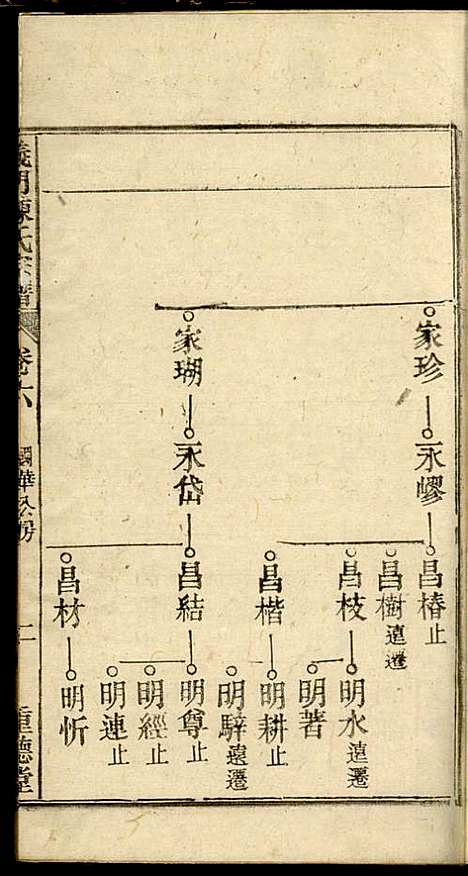 家珍
永嵺
昌椿止
昌樹遠遷
昌枝
明水遠遷
明著
昌楷
明耕止
明騂遠遷
家瑚
永岱
昌結
明尊止
明經止
明連止
昌材
明忻
義門陳氏宗譜
卷六
國華公房
二
重德堂